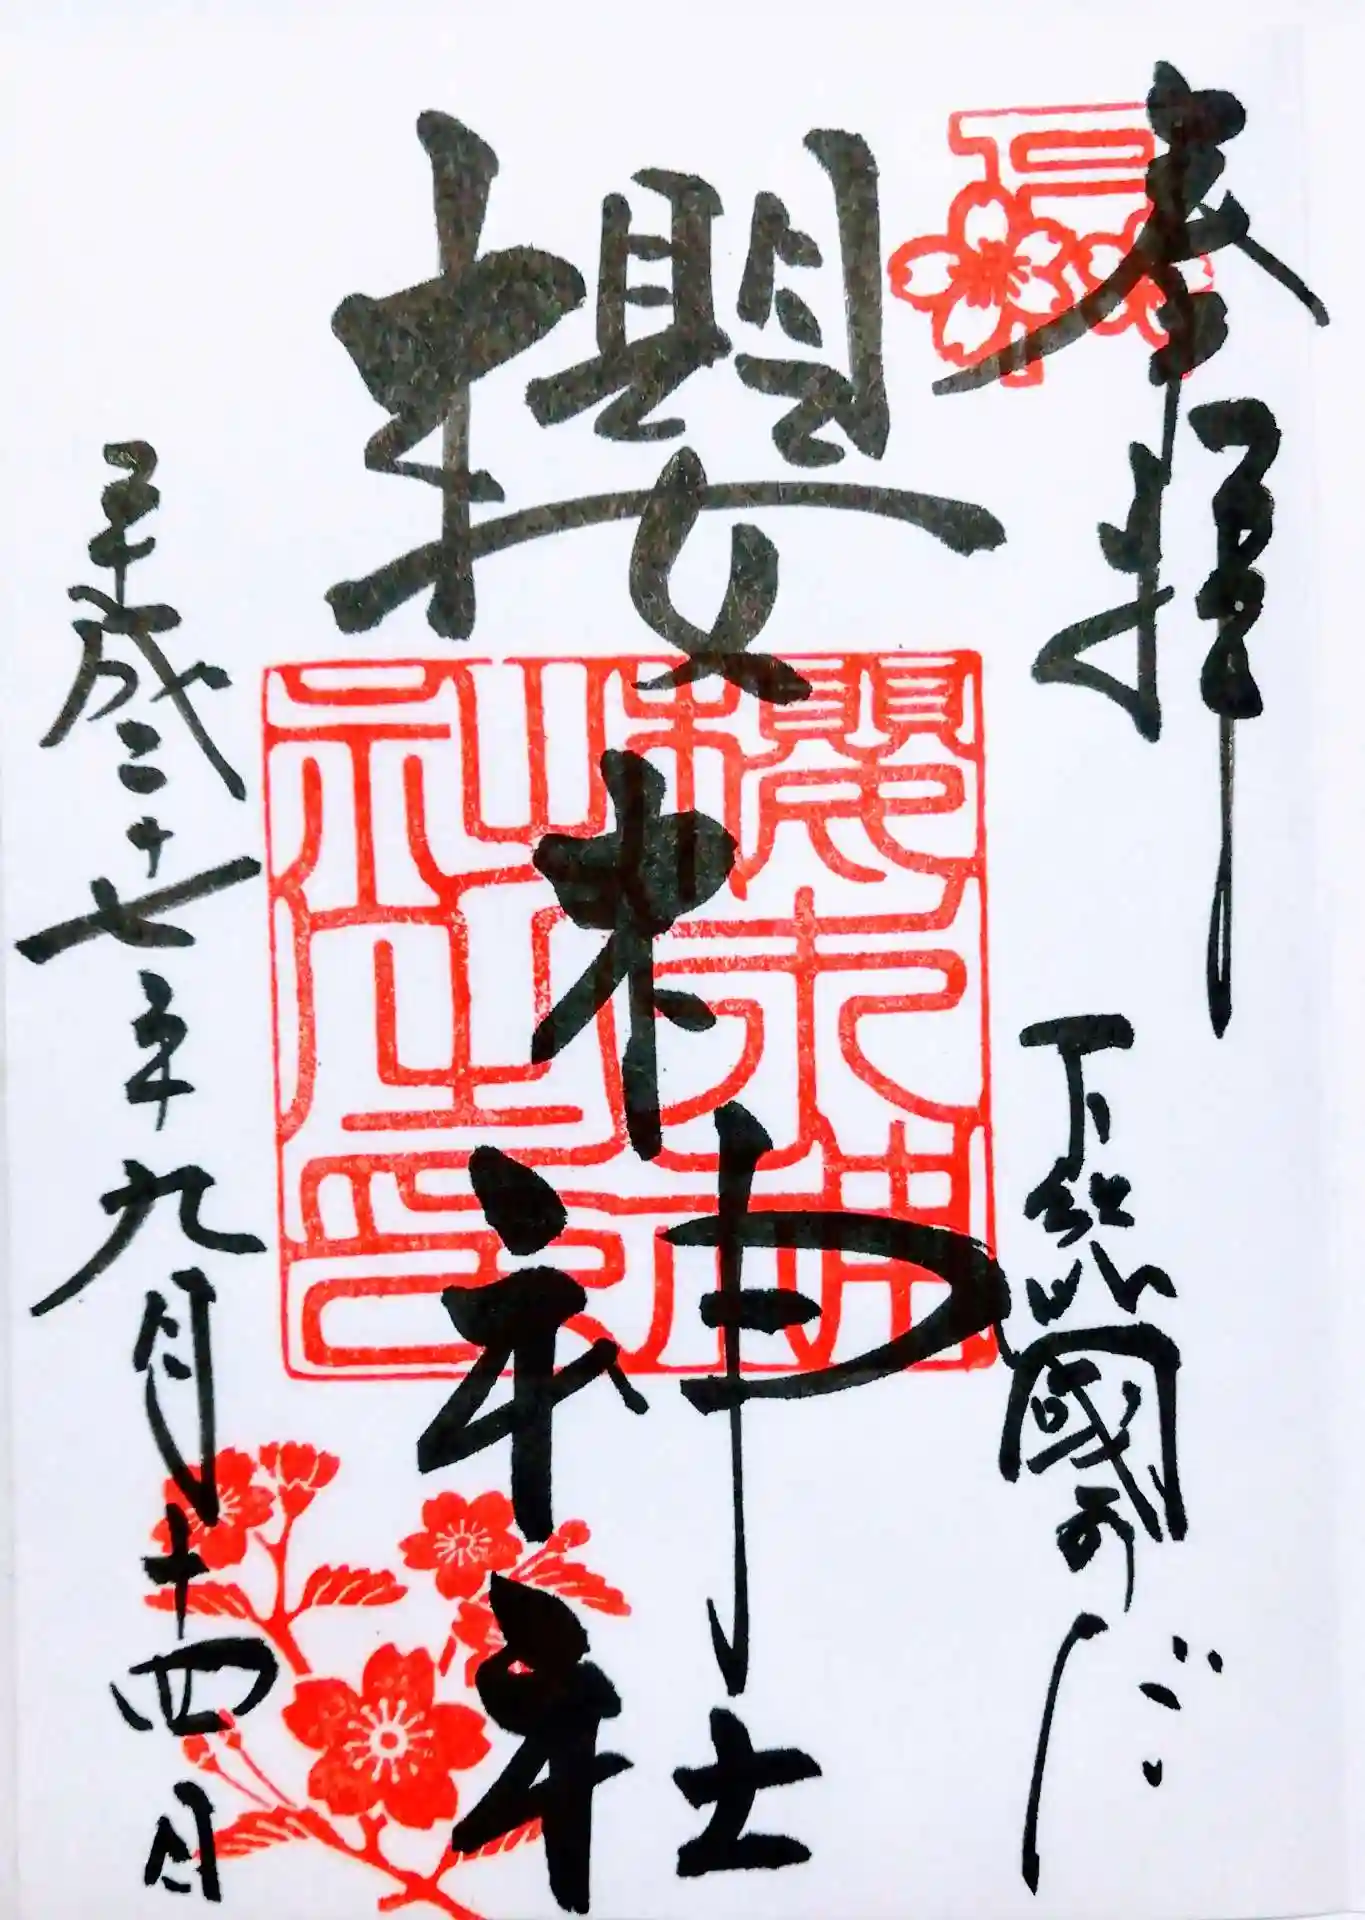 奉拝
下総國のだ
櫻木神社
平成二十七年九月十四日
櫻木神社之印